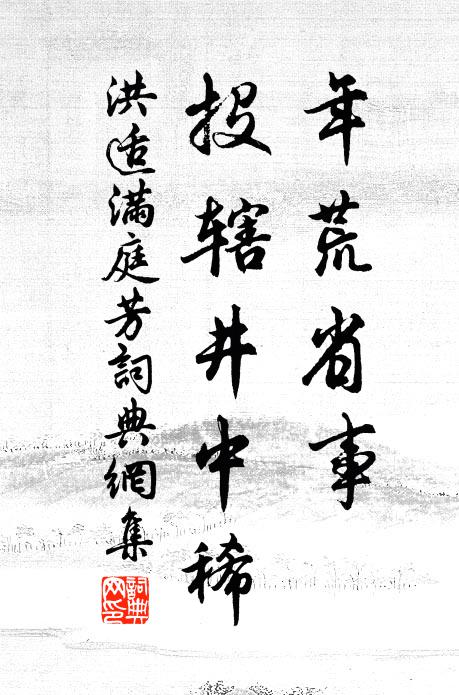 年荒省事
投辖井中稀
洪适满庭芳詞典網集
詞典